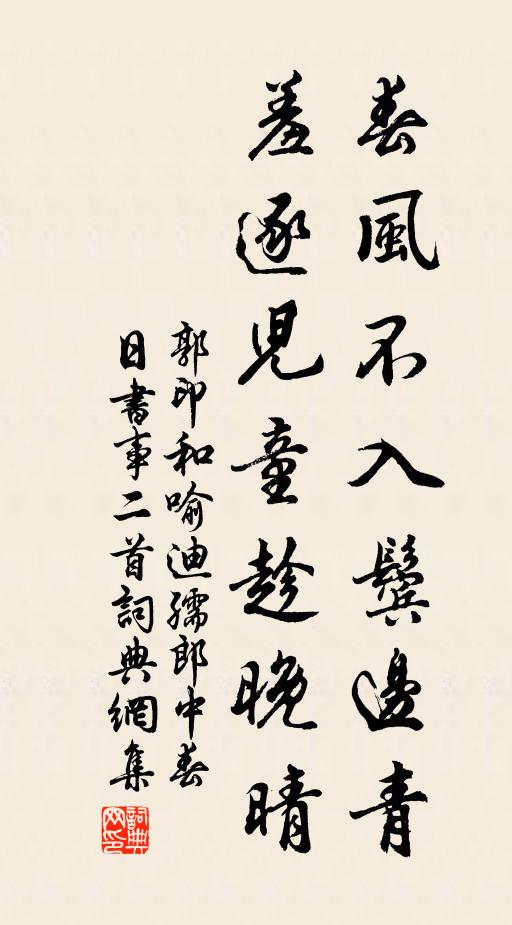 春風不入鬢邊青
羞逐兒童趁晚晴
郭印和喻迪孺郎中春
日書事二首詞典網集
詞典
网印